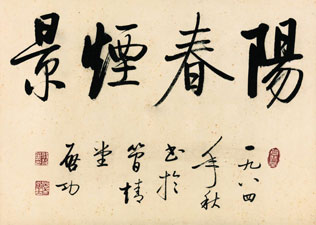 陽春煙景
一九八四
年秋
書於
省情
堂
啟功